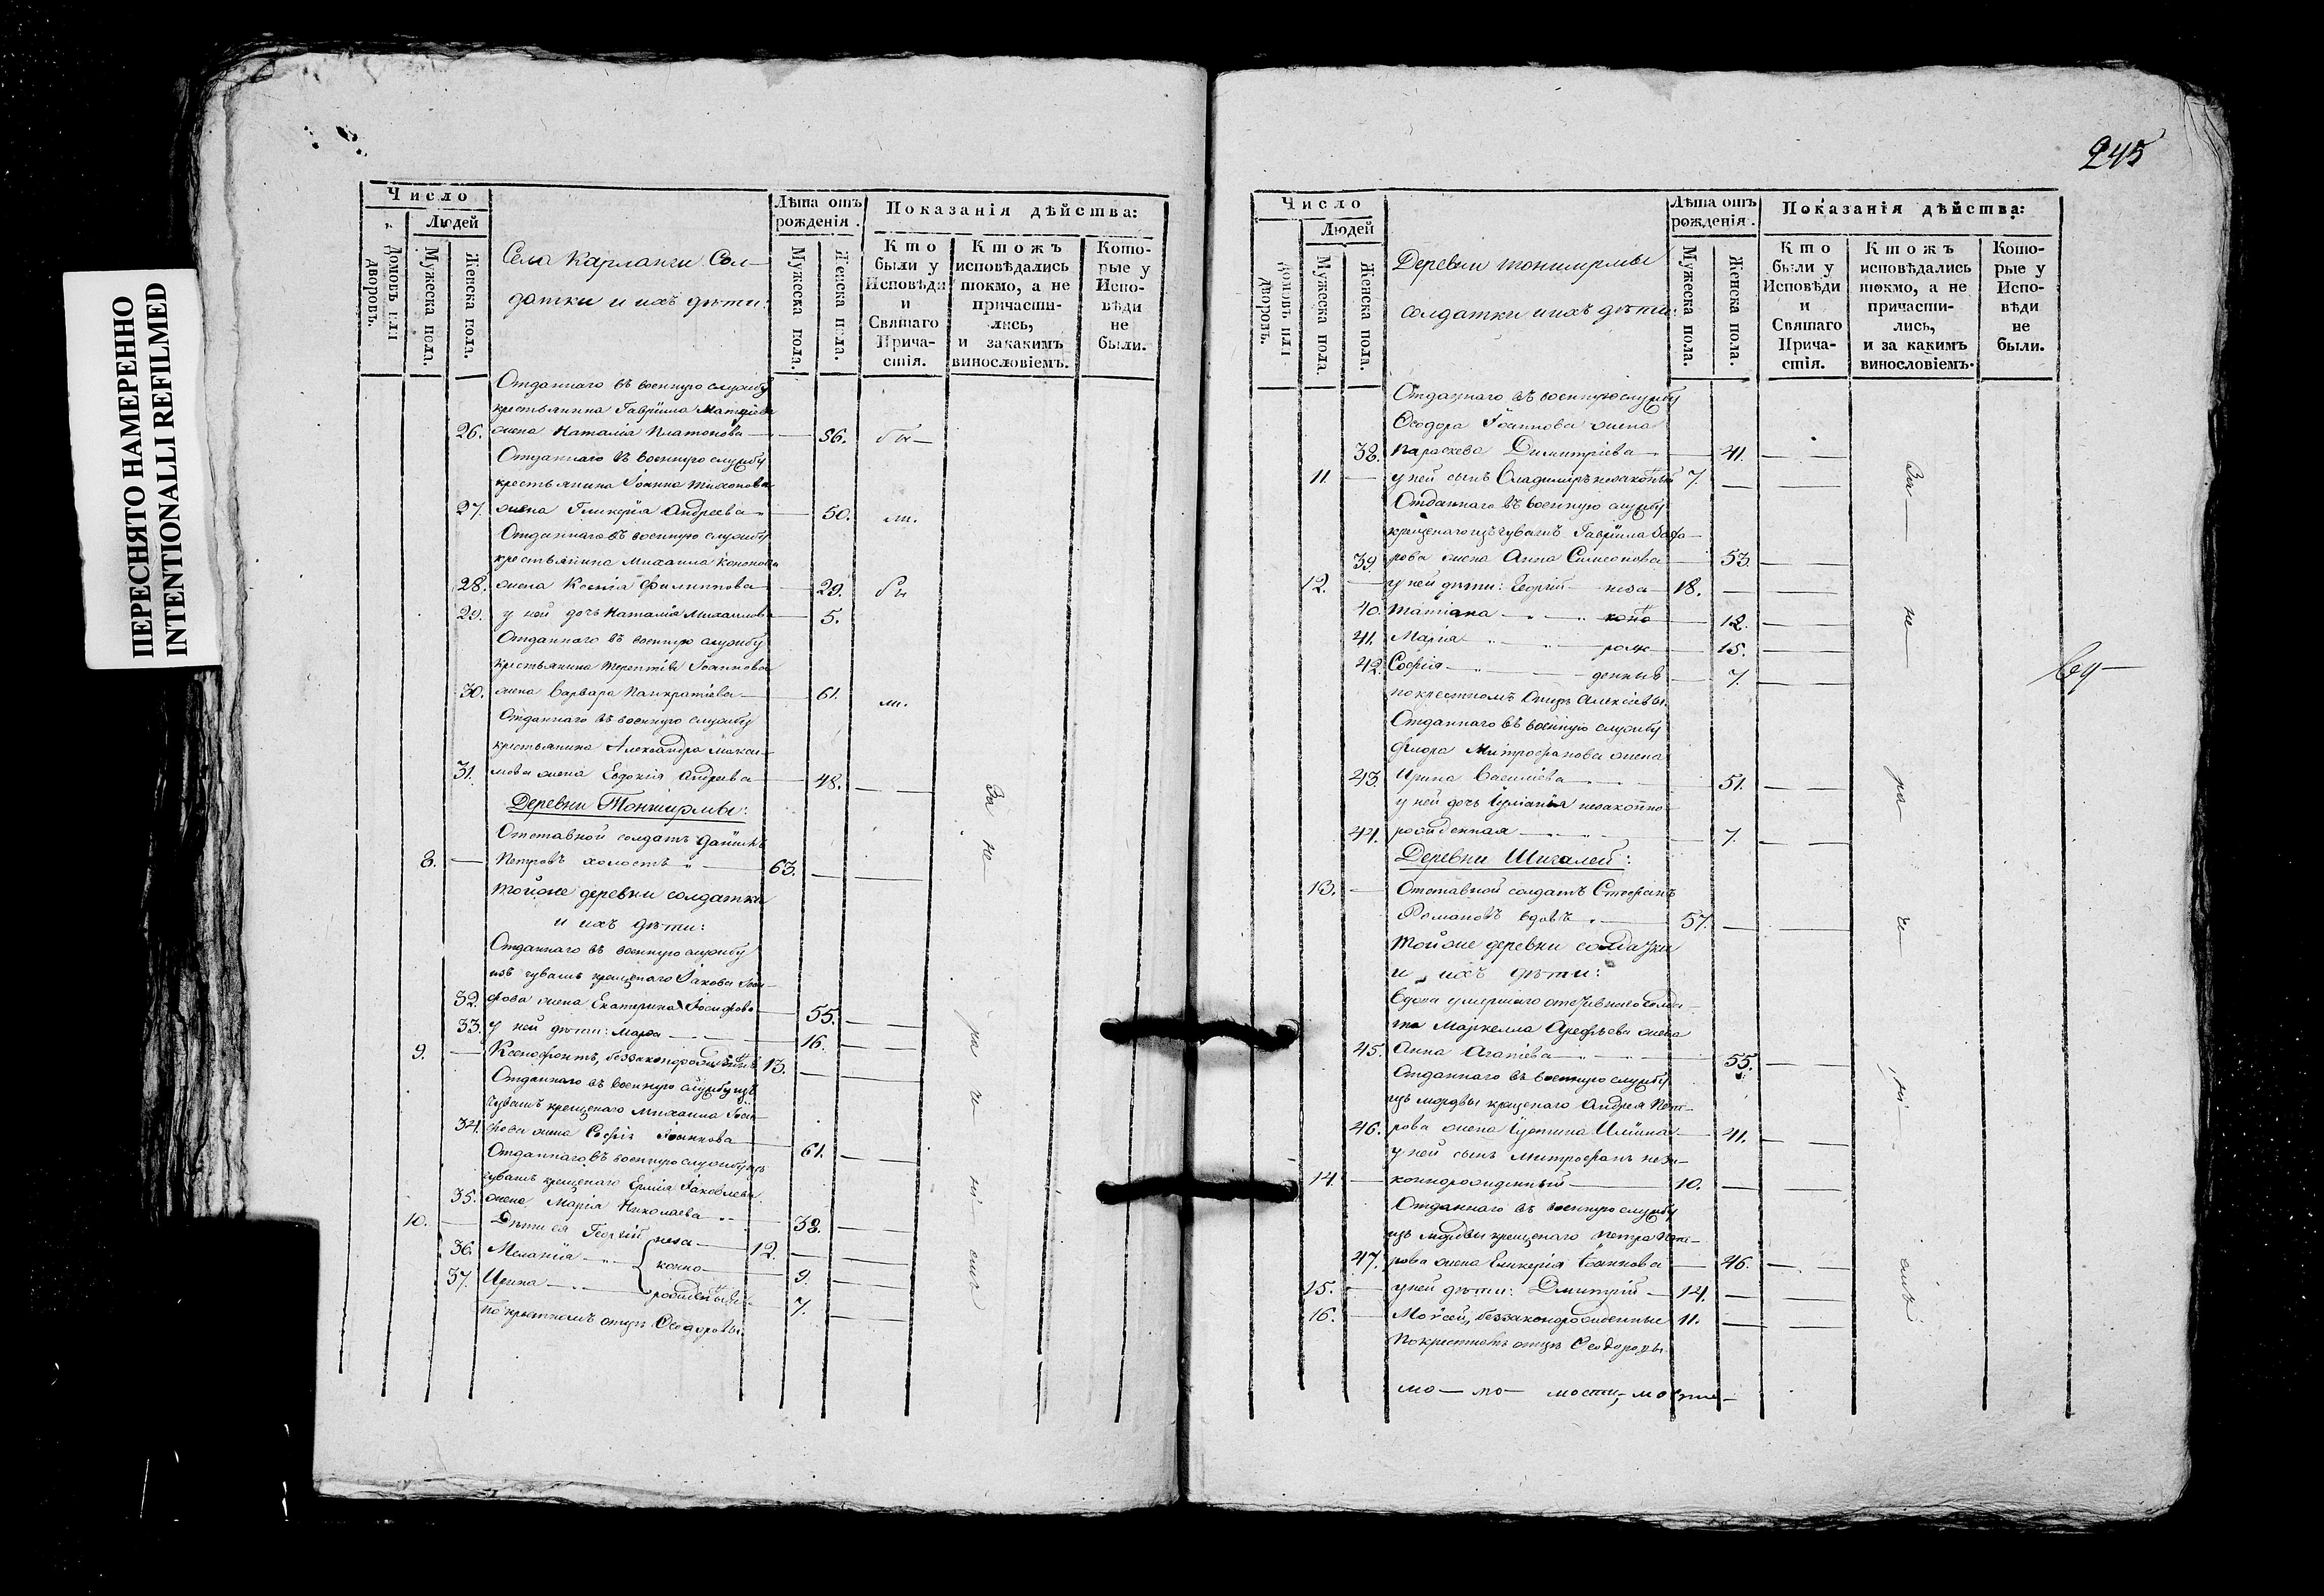 ПЕРЕСНЯТО НАМЕРЕННО
INTENTIONALLI REFILMED
Число
Людей
Домовъ или дворовъ.
Мужеска пола.
Женска пола.
Села Карланги Сол-
датки и ихъ дѣти:
Лѣта отъ рожденія.
Мужеска пола.
Женска пола.
Показанія дѣйства:
Кто были у Исповѣди и Святаго Прича-стія.
Ктожъ исповѣдались токмо, а не причасти-лись, и закакимъ винословіемъ.
Кото-рые у Испо-вѣди не были.
Отданнаго въ военную службу
крестьянина Гавріила Матѳіева
26. жена Наталія Платонова 36. бы-
Отданнаго въ военную службу
крестьянина Іоанна Тихонова
27. жена Гликерія Андреева 50. ли.
Отданнаго въ военную службу
крестьянина Михаила Кононова
28. жена Ксенія Филиппова 29. бы
29. у ней дочь Наталія Михаилова 5.
Отданнаго въ военную службу
крестьянина Терентія Іоаннова
30. жена Варвара Панкратіева 61. ли.
Отданнаго въ военную службу
крестьянина Александра Макси-
31. мова жена Евдокія Андреева 48.
Деревни Тонширмы:
Отставной солдатъ Даніилъ
8. Петровъ холостъ 63.
Тойже деревни солдатки
и ихъ дѣти:
Отданнаго въ военную службу
изъ чувашъ крещенаго Іакова
32. жена Екатерина Іосифова 55.
33. у ней дѣти: Марѳа 16.
9. Ксенофонтъ, беззаконорожденъ 13.
Отданнаго въ военную службу изъ
чувашъ крещенаго Михаила
34. жена Софія Іоаннова 61.
Отданнаго въ военную службу изъ
чувашъ крещенаго Ермія Іаковлева
35. жена Марія Николаева 38.
10. Дѣти ея Георгій неза- 12.
36. Меланія конно- 9.
37. Ирина рожденныя 7.
по крестномъ отцѣ Ѳеодоровы.
За не на хо ні емъ
245
Число
Людей
Домовъ или дворовъ.
Мужеска пола.
Женска пола.
Деревни Тонширмы
солдатки и ихъ дѣти:
Лѣта отъ рожденія.
Мужеска пола.
Женска пола.
Показанія дѣйства:
Кто были у Исповѣди и Святаго Прича-стія.
Ктожъ исповѣдались токмо, а не причасти-лись, и за какимъ винословіемъ.
Кото-рые у Испо-вѣди не были.
Отданнаго въ военную службу
Ѳеодора Іоаннова жена
38. Параскева Димитріева 41.
11. у ней сынъ Владиміръ незаконный 7.
Отданнаго въ военную службу
крещенаго изъ чувашъ Гавріила
39. жена Анна Симеонова 53.
12. у ней дѣти: Георгій неза- 18.
40. Татіана конно 12.
41. Марія рож- 15.
42. Софія денныя 7.
по крестномъ отцѣ Алексіевы.
Отданнаго въ военную службу
Ѳеодора Митрофанова жена
43. Ирина Василіева 51.
у ней дочь Іуліанія незаконно-
44. рожденная 7.
Деревни Шигалей:
13. Отставной солдатъ Стефанъ
Романовъ вдовъ 57.
Тойже деревни солдатки
и ихъ дѣти:
Вдова умершаго отставнаго солда-
та Маркелла Арефьева жена
45. Анна Агапіева 55.
Отданнаго въ военную службу
изъ мордвы крещенаго Андрея Пет-
46. рова жена Іустина Иліина 41.
у ней сынъ Митрофанъ неза-
14. коннорожденный 10.
Отданнаго въ военную службу
изъ мордвы крещенаго Петра Пет-
47. рова жена Гликерія Іоаннова 46.
15. у ней дѣти: Дмитрій 14.
16. Моѵсей, беззаконорожденные 11.
По крестномъ отцѣ Ѳеодоровы.